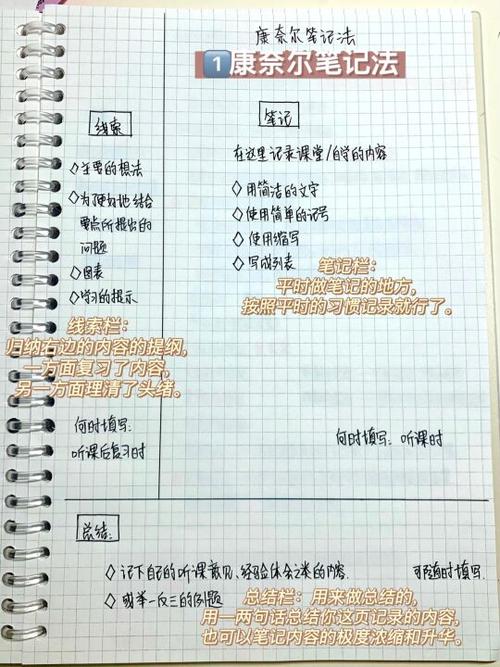 康奈尔笔记法
1康奈尔笔记法
线索
◇主要的想法
◇为了更好地结合
要点所提出的
问题
◇图表
◇学习的提示
线索栏：
归纳右边的内容的提纲，
一方面复习了内容，
另一方面理清了头绪。
何时填写：
听课后复习时
笔记
在这里记录课堂/自学的内容
◇用简洁的文字
◇使用简单的记号
◇使用缩写
◇写成列表
笔记栏：
平时做笔记的地方，
按照平时的习惯记录就行了。
何时填写：听课时
总结：
◇记下自己的听课意见、经验体会之类的内容.
可随时填写.
◇或举一反三的例题
总结栏：用来做总结的，
用一两句话总结你这页记录的内容，
也可以笔记内容的极度浓缩和升华。